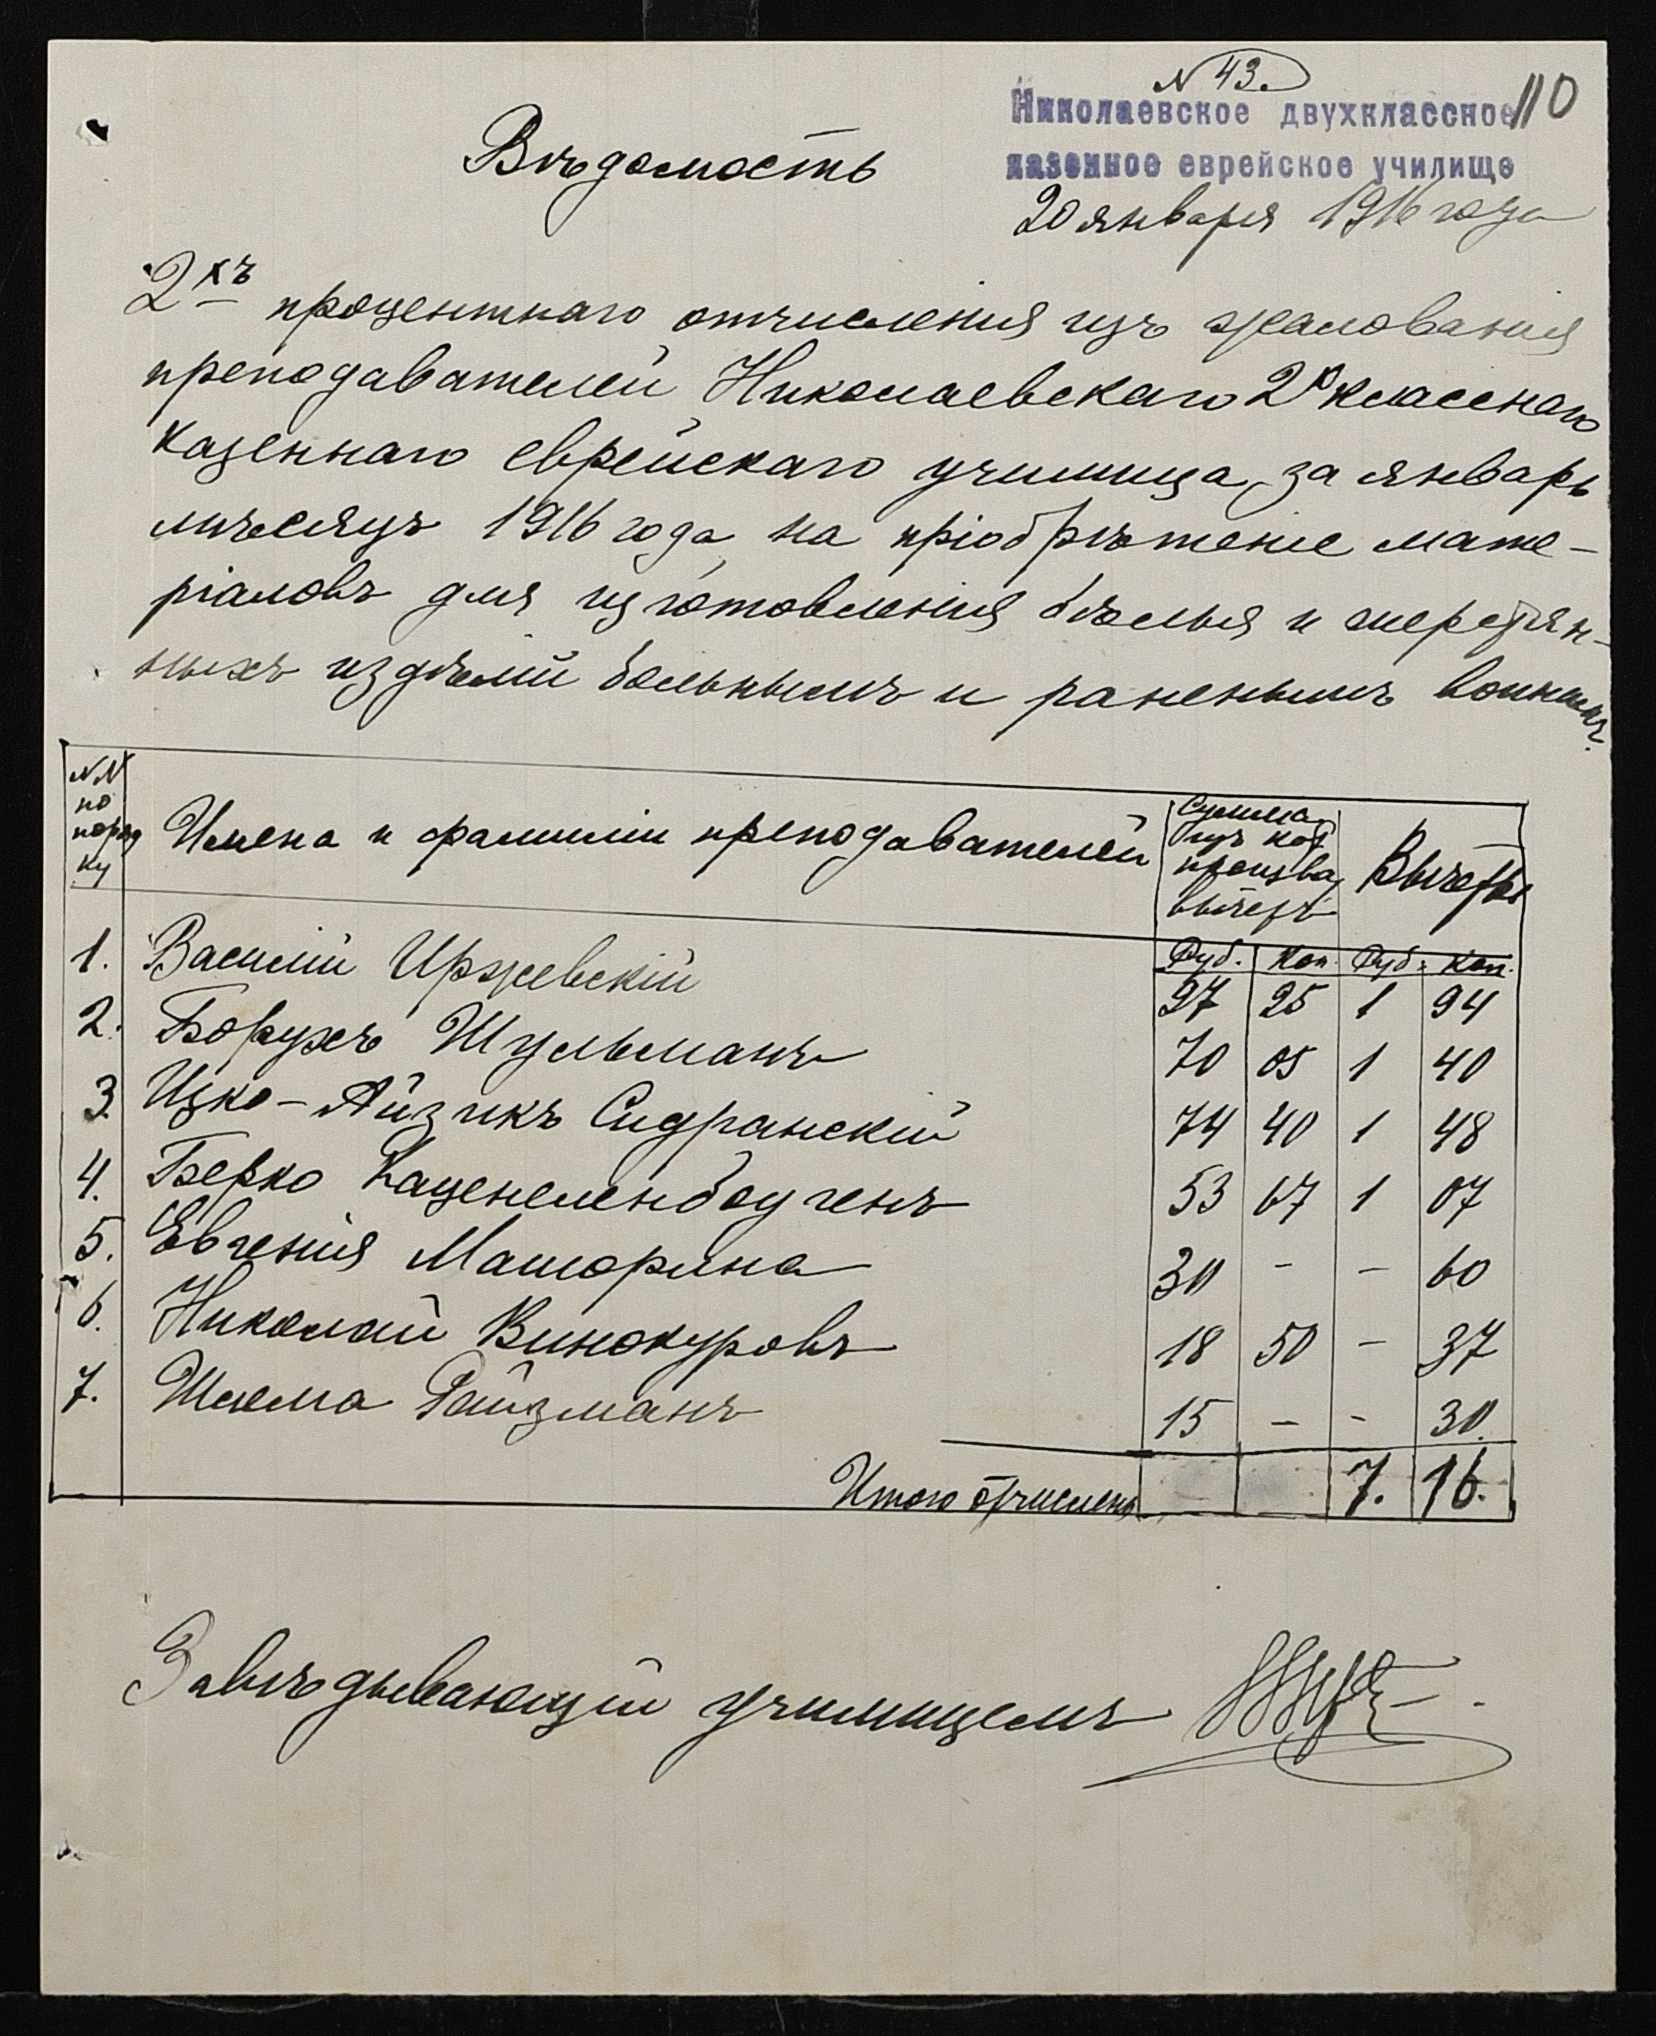 N 43.
110
Николаевское двухклассное
казенное еврейское училище
20 января 1916 года
Вѣдомость
2хъ процентнаго отчисленія изъ жалованія
преподавателей Николаевскаго 2х класснаго
казеннаго еврейскаго училища за январь
мѣсяцъ 1916 года на пріобрѣтеніе мате-
ріаловъ для изготовленія бѣлья и шерстян-
ныхъ издѣлій больнымъ и раненымъ воинамъ.
NN по порядку Имена и фамиліи преподавателей Сумма изъ кот. произва. вычетъ Вычеты
Руб. Коп. Руб. Коп.
1. Василій Иржевскій 97 25 1 94
2. Борухъ Шульманъ 70 05 1 40
3. Ицко-Айзикъ Сидранскій 74 40 1 48
4. Берко Каценеленбоугенъ 53 67 1 07
5. Евгенія Машорина 30 - - 60
6. Николай Винокуровъ 18 50 - 37
7. Шлема Райзманъ 15 - - 30.
Итого отчислено 7. 16.
Завѣдывающій училищемъ